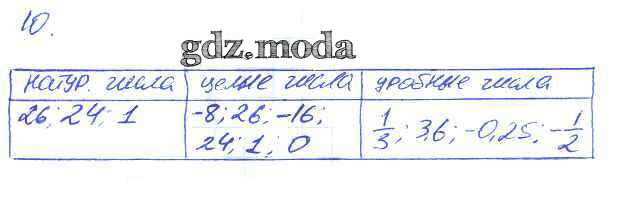 10.
gdz.moda
натур. числа | целые числа | дробные числа
26; 24; 1 | -8; 26; -16; | 1/3; 3,6; -0,25; -1/2
24; 1; 0